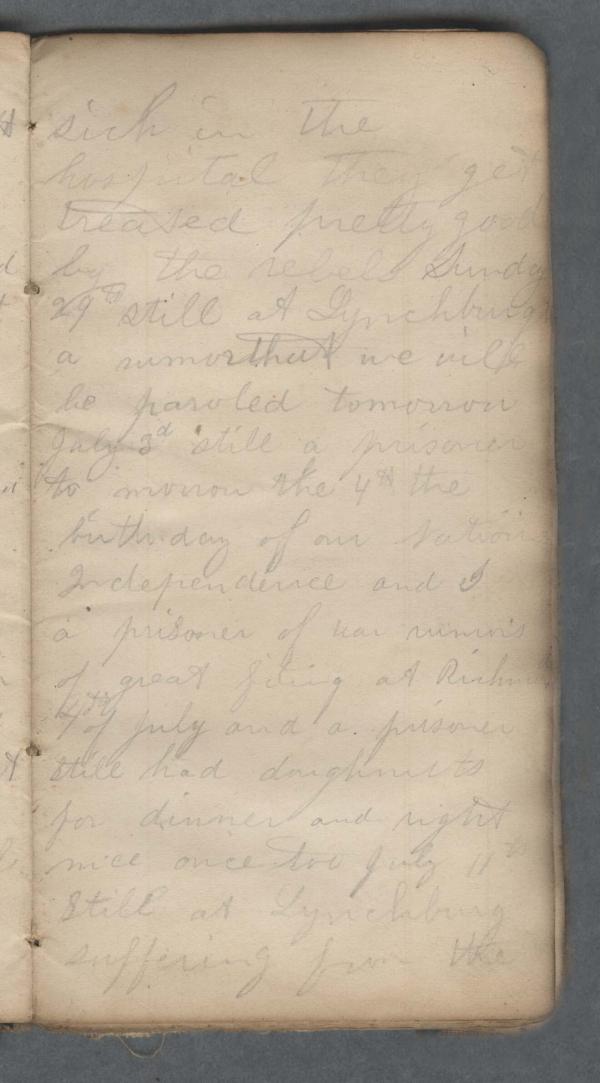 sick in the
hospital they get
treated pretty good
by the rebels Sunday
29th still at Lynchburg
a rumor that we will
be paroled tomorrow
July 3d still a prisoner
to morrow the 4th the
birthday of our Nation
Independence and I
a prisoner of war rumors
of great fiting at Richmd
4th of July and a prisoner
still had doughnuts
for dinner and right
nice once too July 11th
Still at Lynchburg
suffering from the